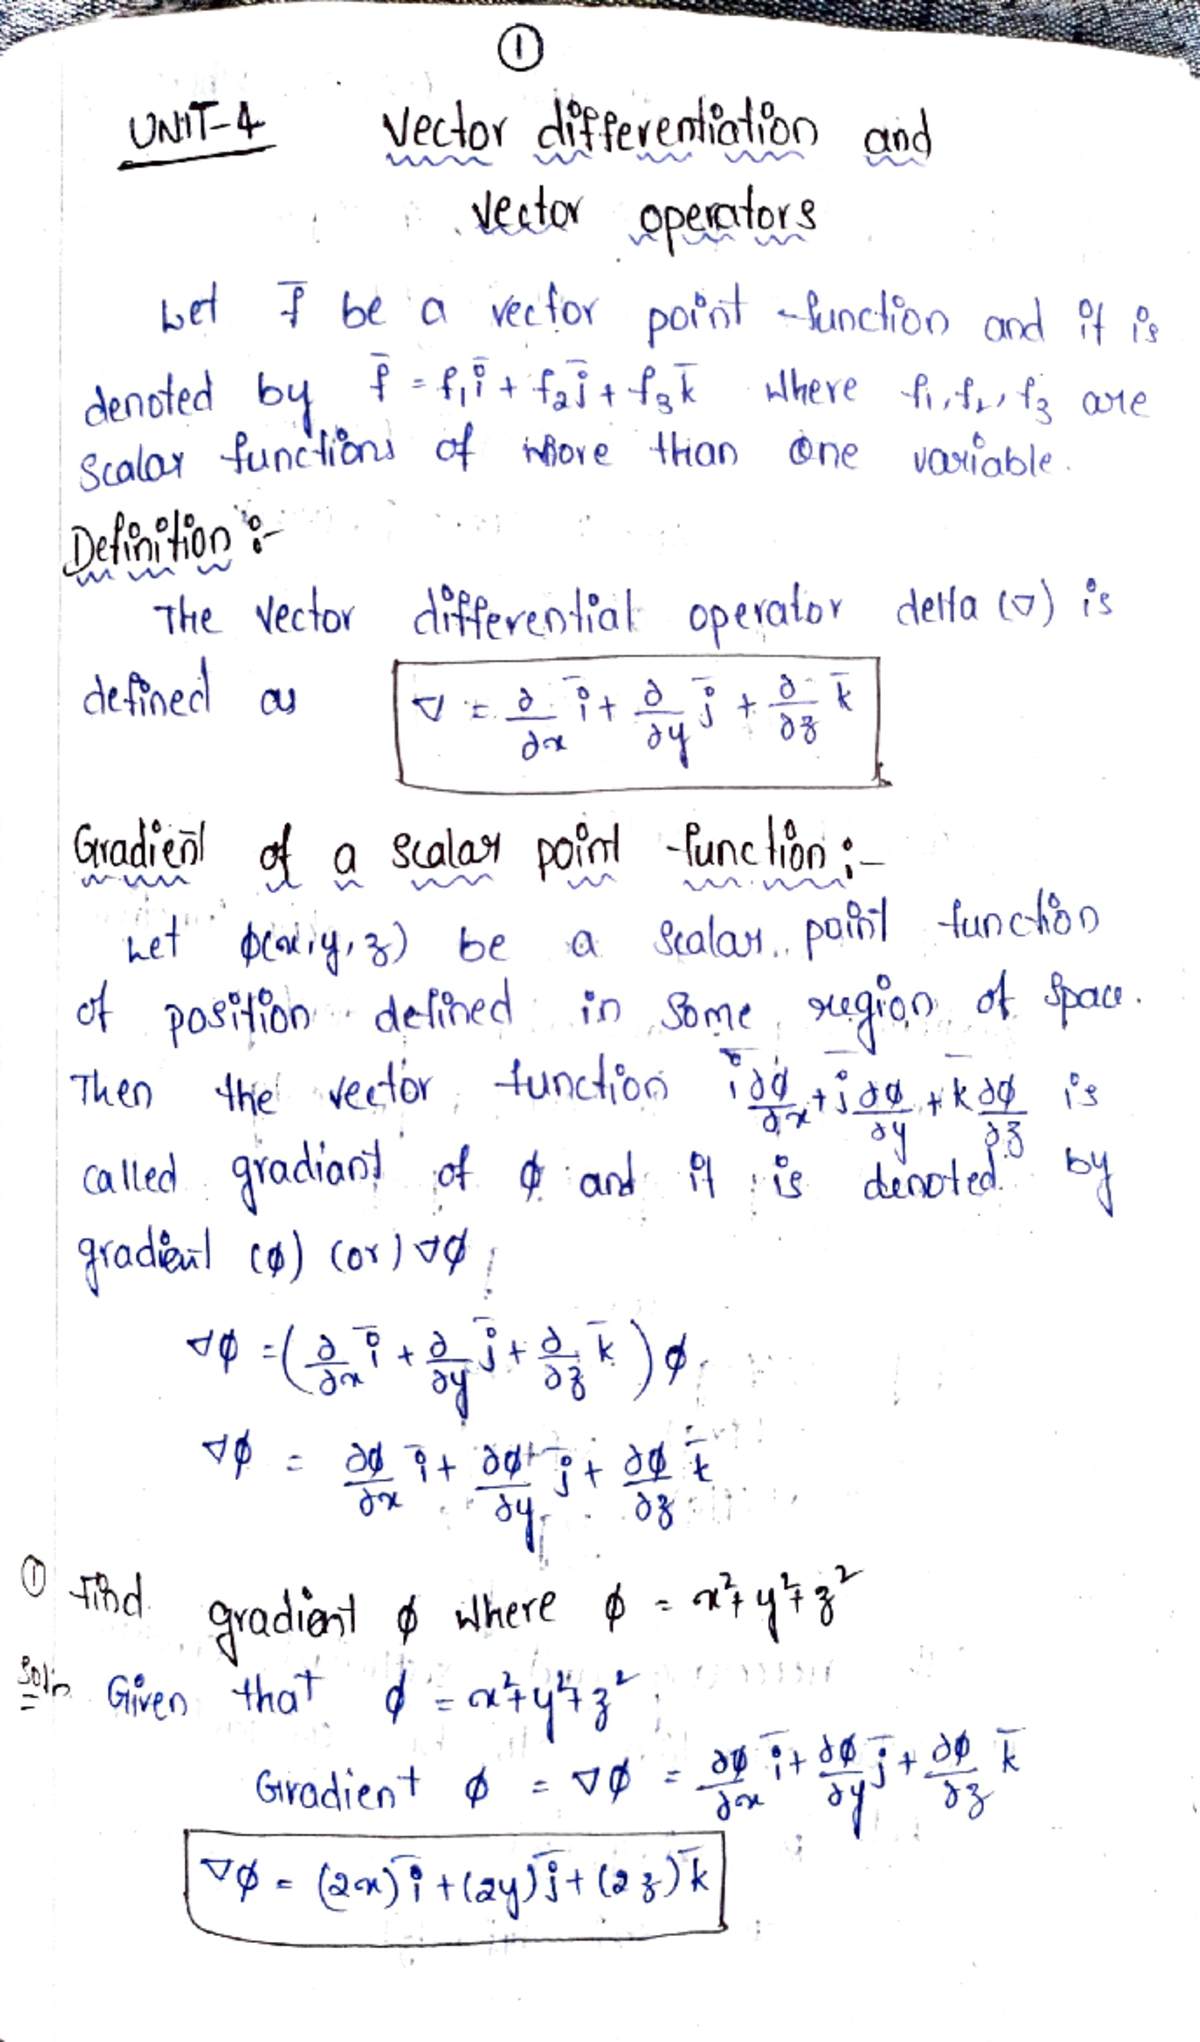 ①
UNIT-4 Vector differentiation and
vector operators
Let f̄ be a vector point function and it is
denoted by f̄ = f₁ī + f₂j̄ + f₃k̄ where f₁, f₂, f₃ are
scalar functions of more than one variable.
Definition :-
The vector differential operator delta (∇) is
defined as ∇ = ∂/∂x ī + ∂/∂y j̄ + ∂/∂z k̄
Gradient of a scalar point function :-
Let ϕ(x,y,z) be a scalar point function
of position defined in some region of space.
Then the vector function ī ∂ϕ/∂x + j̄ ∂ϕ/∂y + k̄ ∂ϕ/∂z is
called gradiant of ϕ and it is denoted by
gradient (ϕ) (or) ∇ϕ
∇ϕ = (∂/∂x ī + ∂/∂y j̄ + ∂/∂z k̄) ϕ
∇ϕ = ∂ϕ/∂x ī + ∂ϕ/∂y j̄ + ∂ϕ/∂z k̄
① Find gradient ϕ where ϕ = x²+y²+z²
Soln Given that ϕ = x²+y²+z²
Gradient ϕ = ∇ϕ = ∂ϕ/∂x ī + ∂ϕ/∂y j̄ + ∂ϕ/∂z k̄
∇ϕ = (2x)ī + (2y)j̄ + (2z)k̄